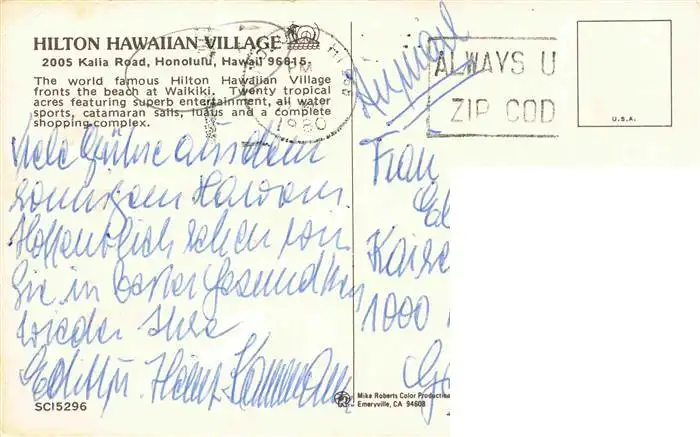 HILTON HAWAIIAN VILLAGE
2005 Kalia Road, Honolulu, Hawaii 96815
The world famous Hilton Hawaiian Village
fronts the beach at Waikiki. Twenty tropical
acres featuring superb entertainment, all water
sports, catamaran sails, luaus and a complete
shopping complex.
PM
1980
Viele Grüße aus dem
sonnigen Hawaii.
Hoffentlich sehen wir
Sie in bester Gesundheit
wieder Ihre
Edith u. Heinz
SC15296
Air mail
ALWAYS U
ZIP COD
U.S.A.
Frau
1000
Mike Roberts Color Productio
Emeryville, CA 94608